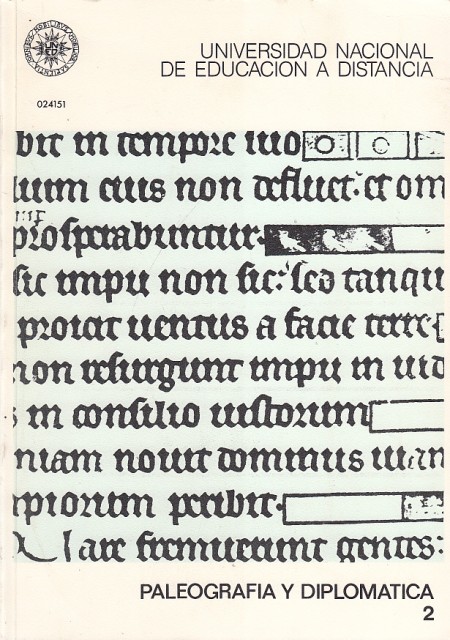 OMNIBUS MOBILIBUS MOBILIOR SAPIENTIA
UNED
UNIVERSIDAD NACIONAL
DE EDUCACION A DISTANCIA
024151
bit in tempore suo
lium eius non defluet: et om
prosperabuntur.
sic impii non sic: sed tanqu
proicit uentus a facie terre
non resurgunt impii in iud
s in consilio iustorum
niam nouit dominus uiam
mpiorum peribit.
Quare fremuerunt gentes:
PALEOGRAFIA Y DIPLOMATICA
2